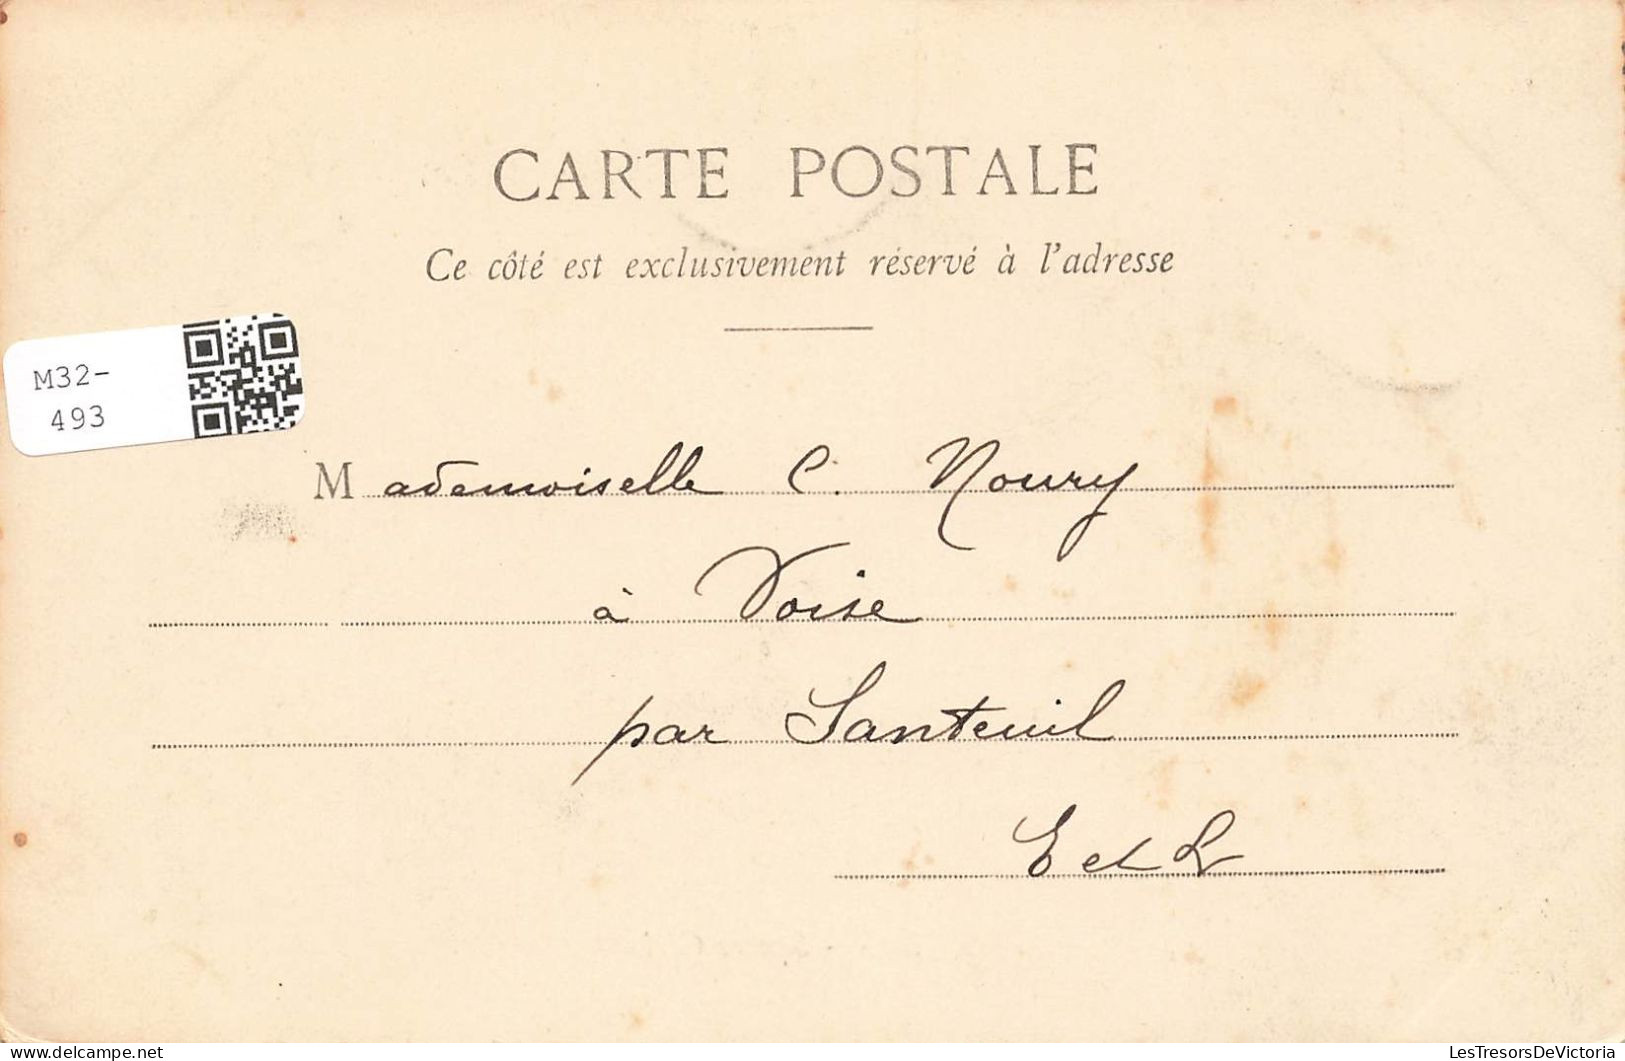 CARTE POSTALE
Ce côté est exclusivement réservé à l'adresse
M32-
493
Mademoiselle C. Noury
à Voise
par Santeuil
E et L
LesTresorsDeVictoria